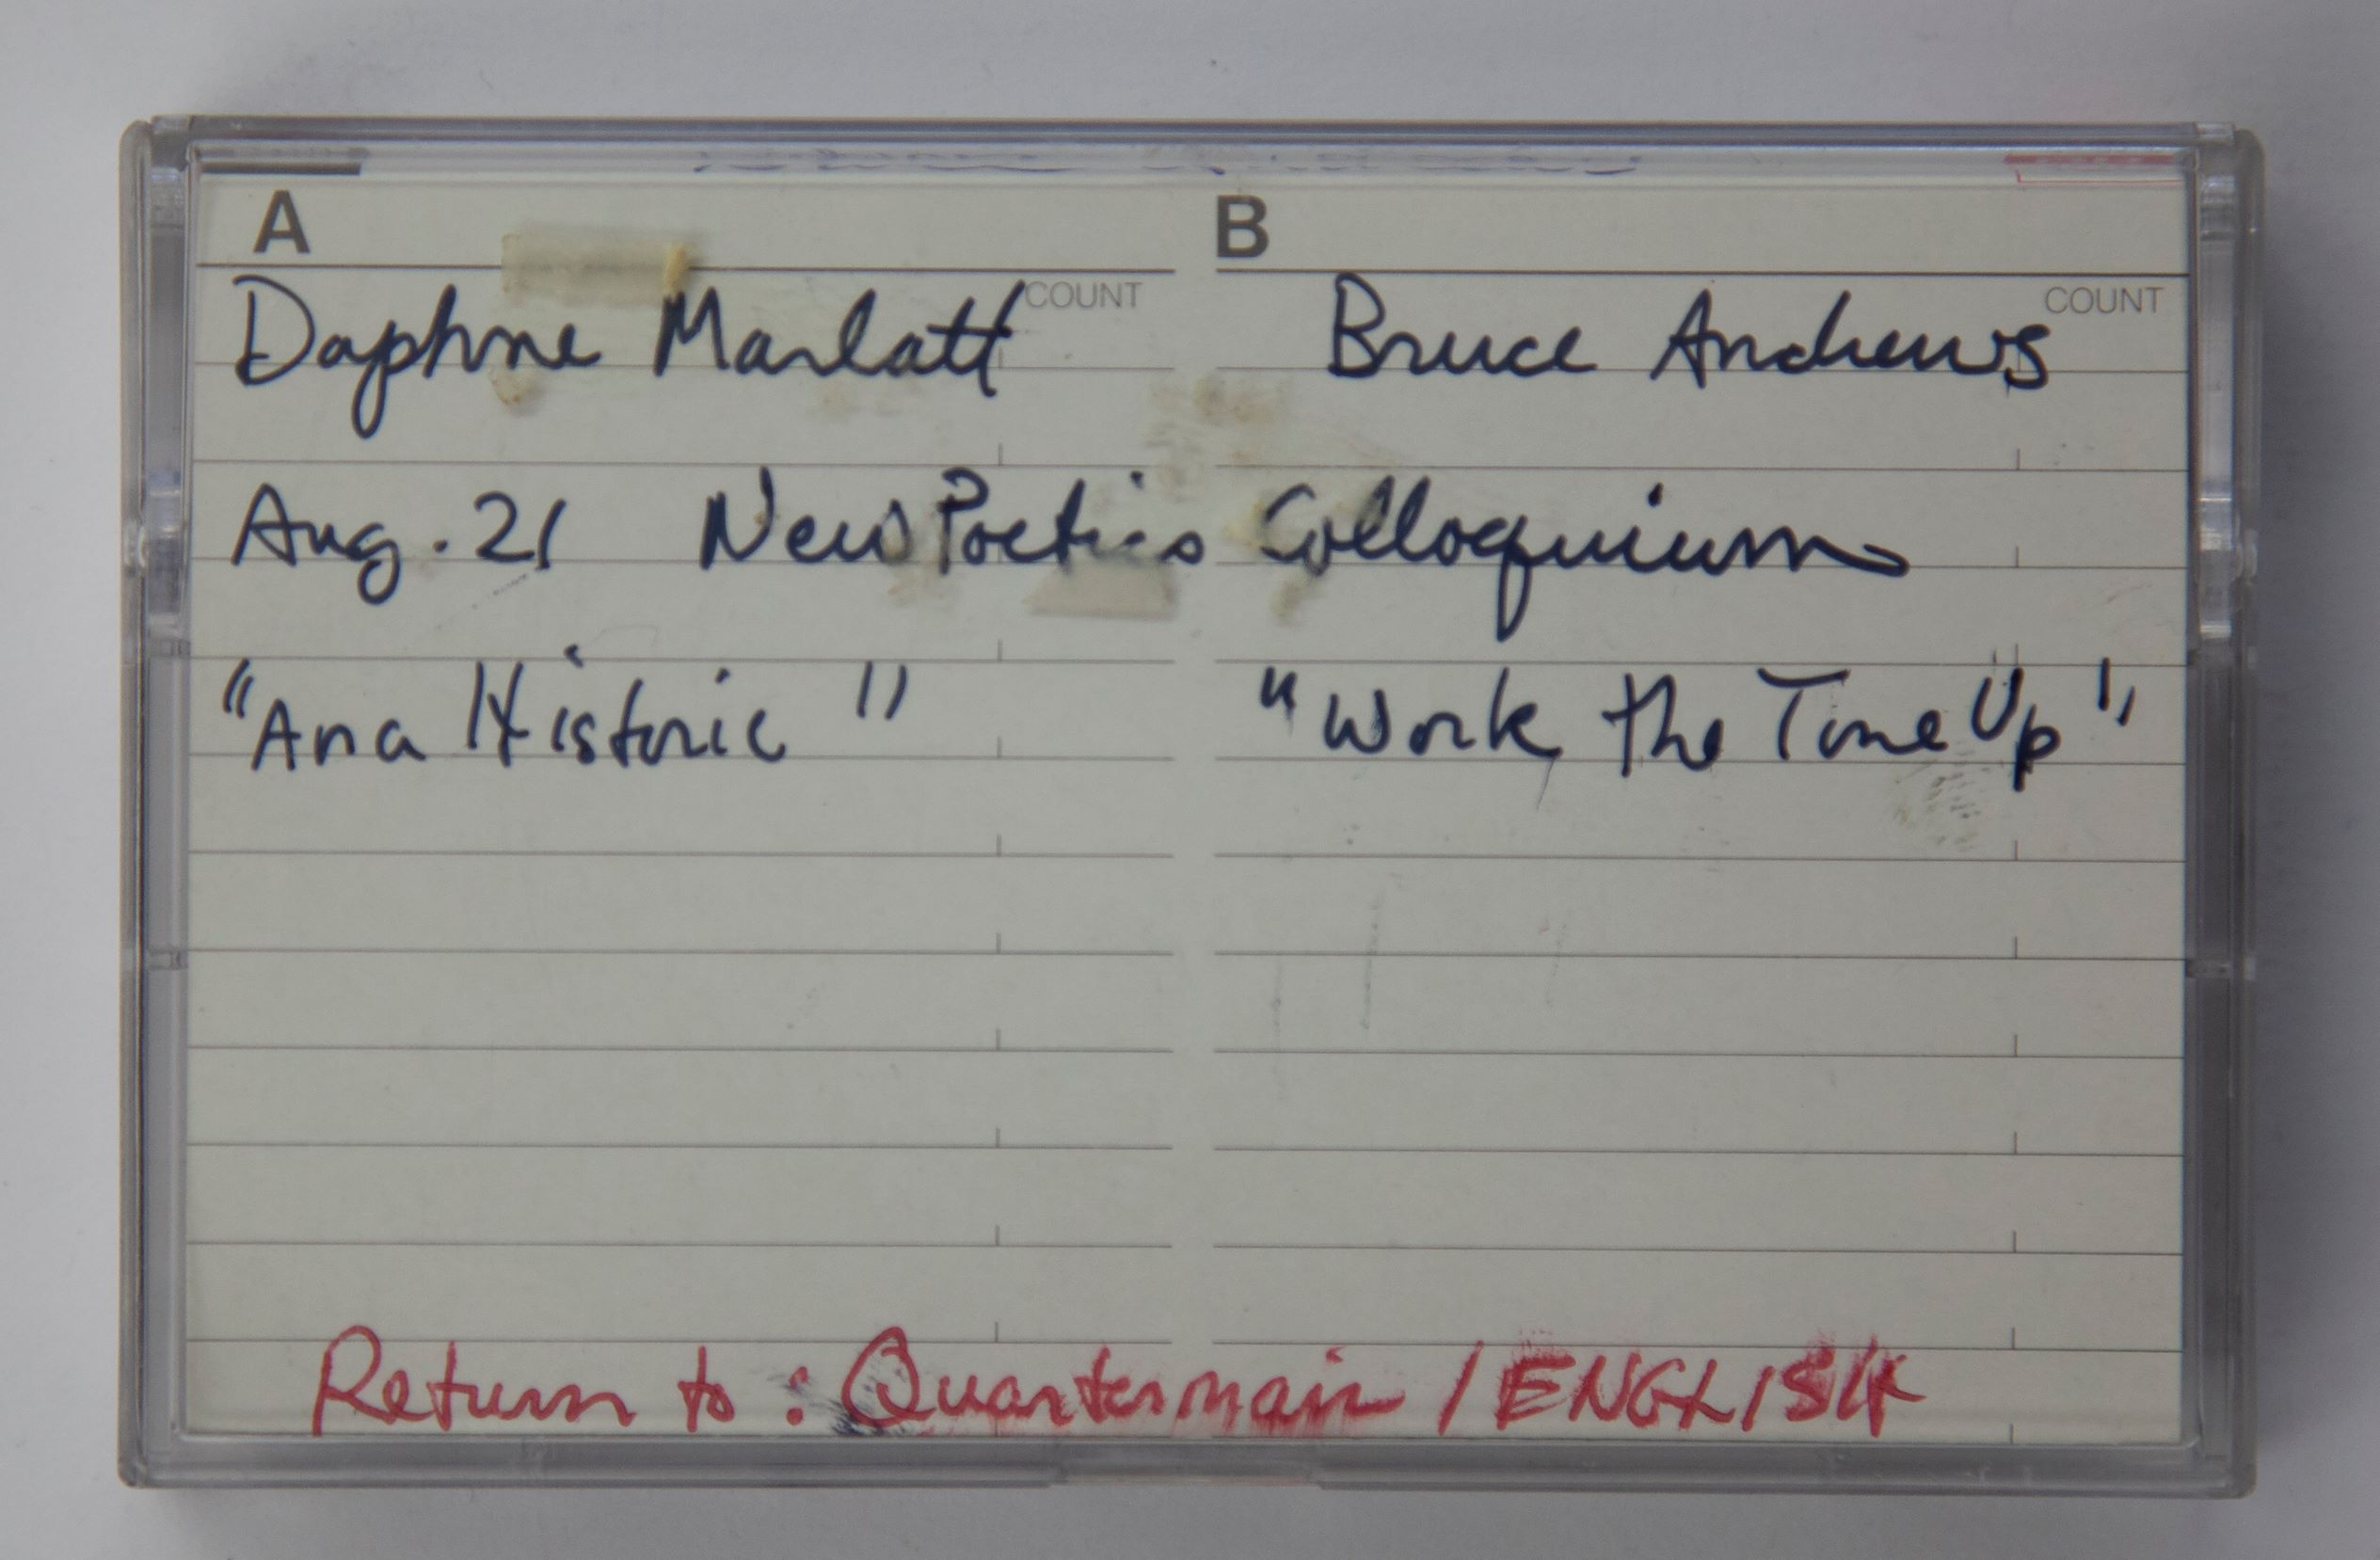 A B
COUNT COUNT
Daphne Marlatt Bruce Andrews
Aug. 21 New Poetics Colloquium
"Ana Historic" "Work the Tone Up"
Return to: Quartermain / ENGLISH